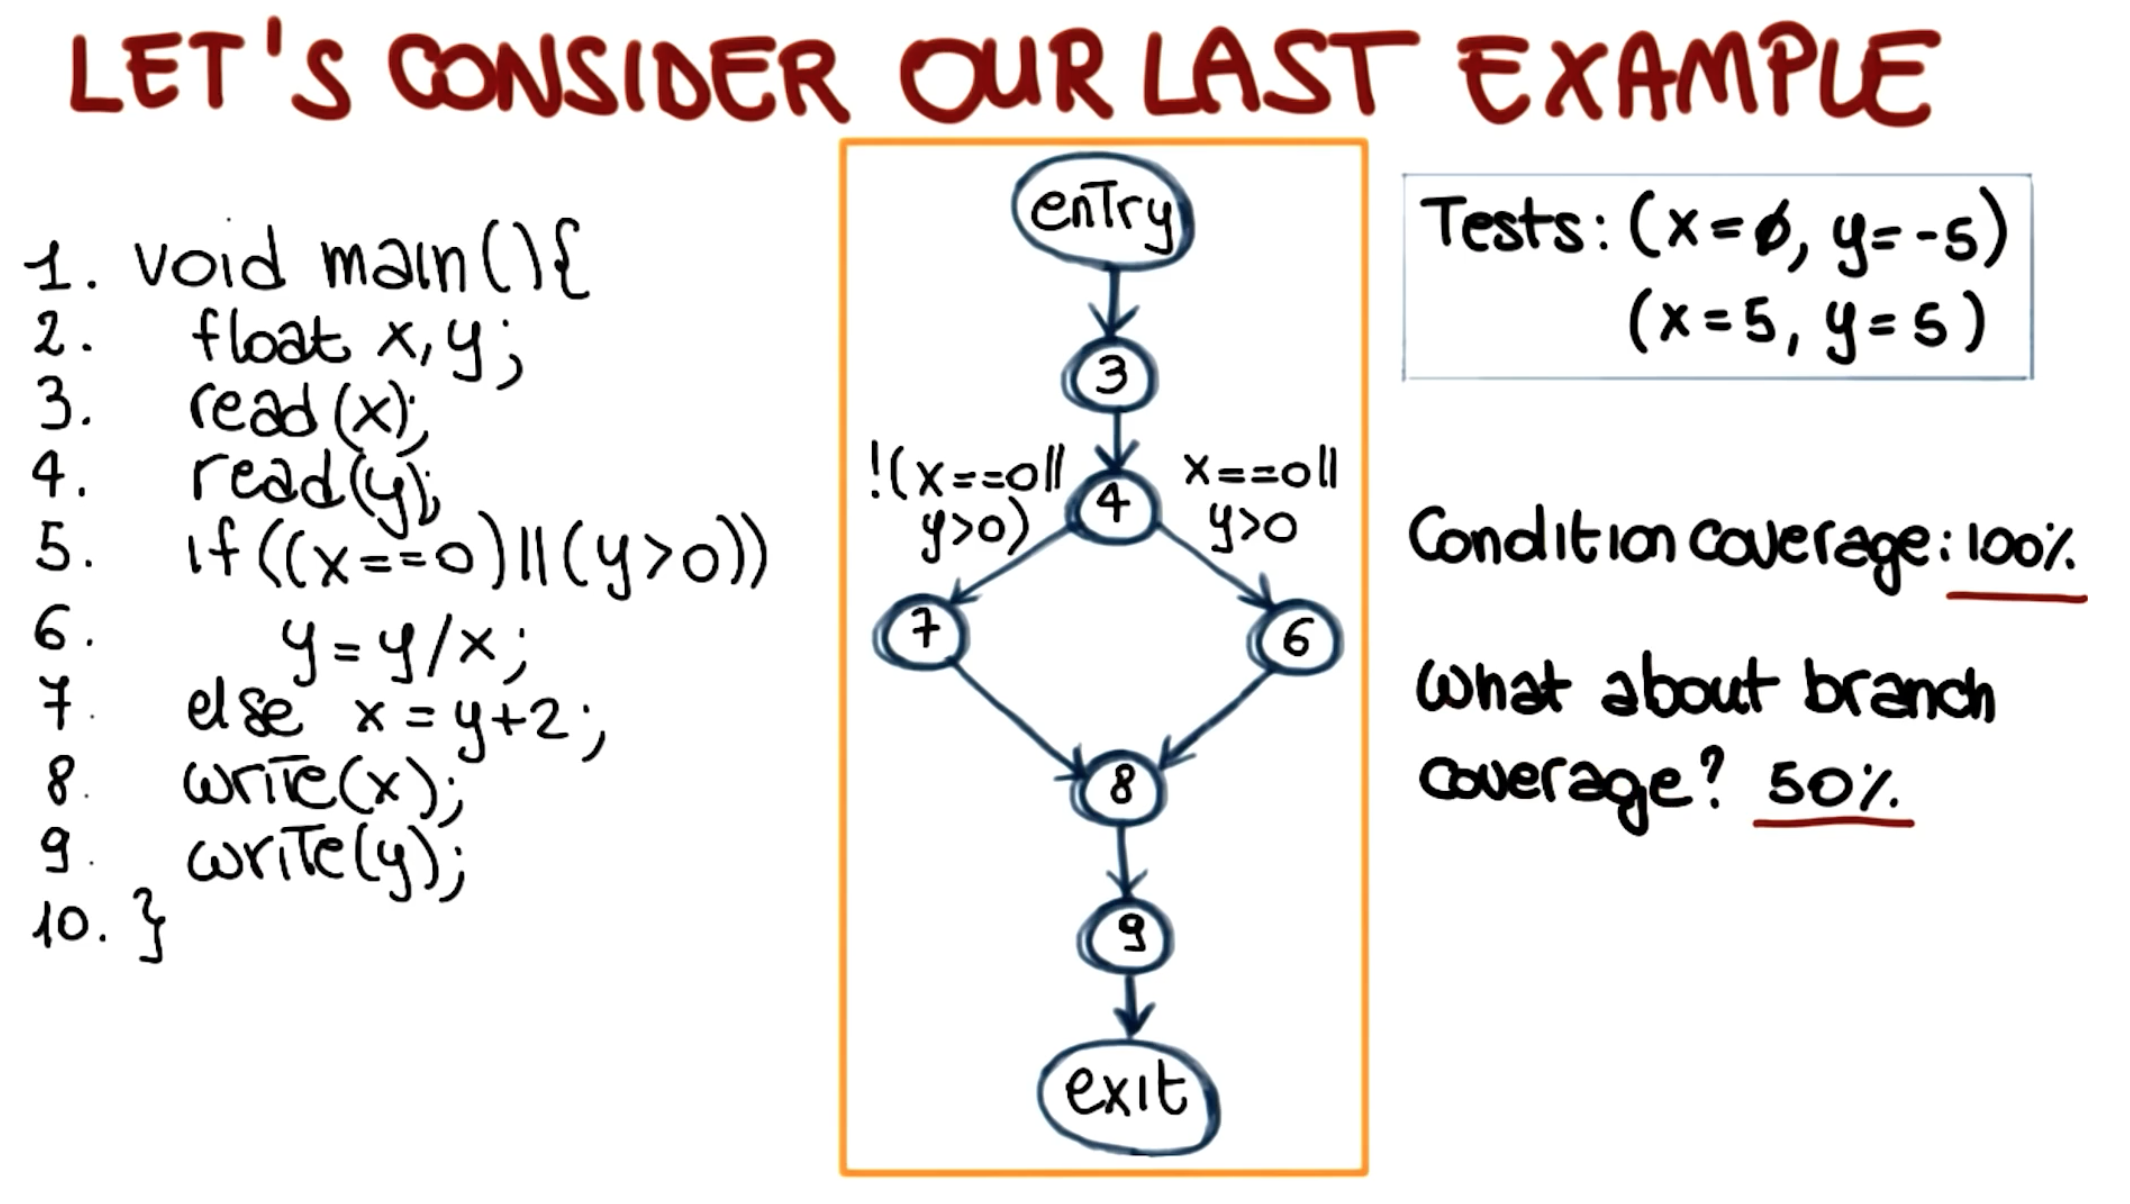 LET'S CONSIDER OUR LAST EXAMPLE
1. void main(){
2. float x,y;
3. read(x);
4. read(y);
5. if((x==0)||(y>0))
6. y=y/x;
7. else x=y+2;
8. write(x);
9. write(y);
10. }
entry
3
!(x==0||
y>0)
4
x==0||
y>0
7
6
8
9
exit
Tests: (x=0, y=-5)
(x=5, y=5)
Condition coverage: 100%
What about branch
coverage? 50%